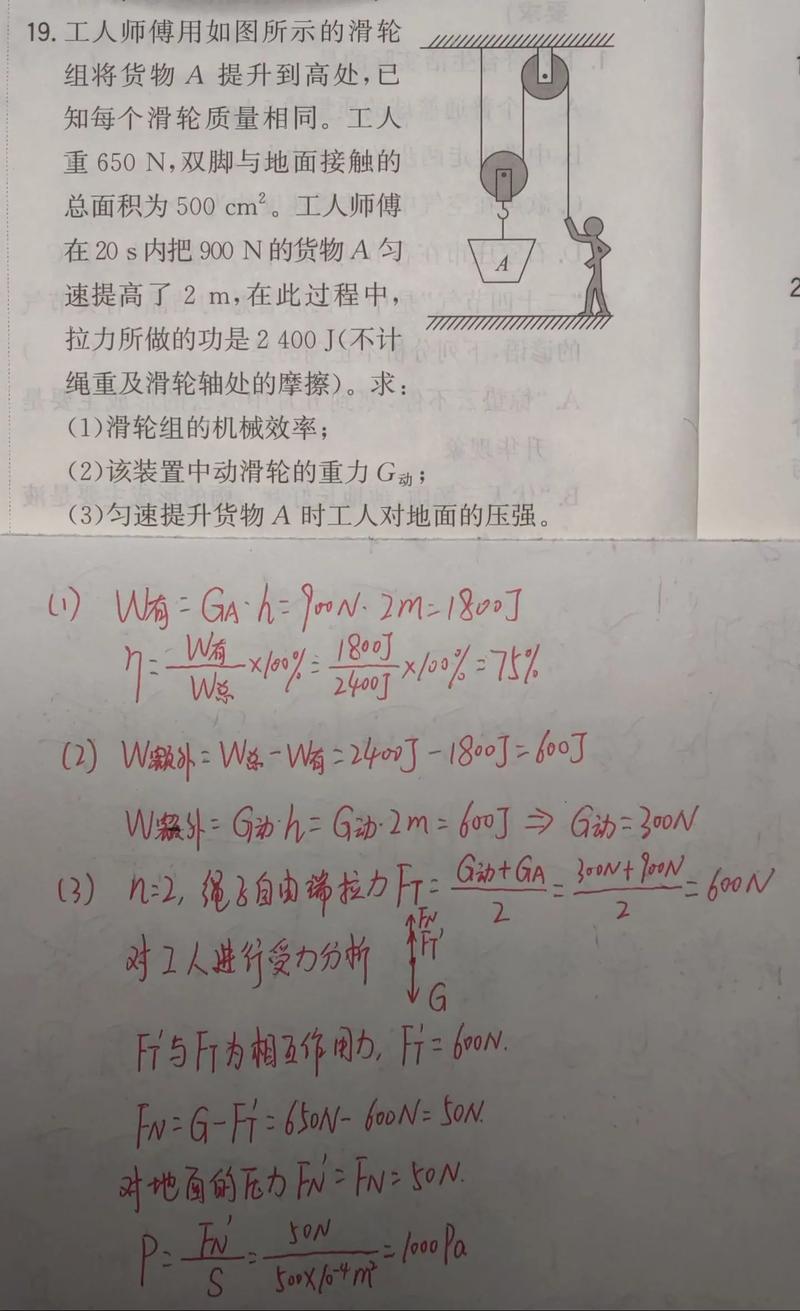 19. 工人师傅用如图所示的滑轮
组将货物 A 提升到高处,已
知每个滑轮质量相同。工人
重 650 N,双脚与地面接触的
总面积为 500 cm²。工人师傅
在 20 s 内把 900 N 的货物 A 匀
速提高了 2 m,在此过程中,
拉力所做的功是 2 400 J(不计
绳重及滑轮轴处的摩擦)。求:
(1)滑轮组的机械效率;
(2)该装置中动滑轮的重力 G动;
(3)匀速提升货物 A 时工人对地面的压强。
A
2
(1) W有=GA·h=900N·2m=1800J
η=W有/W总×100%=1800J/2400J×100%=75%
(2) W额外=W总-W有=2400J-1800J=600J
W额外=G动·h=G动·2m=600J⇒G动=300N
(3) n=2, 绳子自由端拉力 FT=(G动+GA)/2=(300N+900N)/2=600N
对工人进行受力分析 FN FT' G
FT'与FT为相互作用力, FT'=600N.
FN=G-FT'=650N-600N=50N.
对地面的压力 FN'=FN=50N.
P=FN'/S=50N/500×10⁻⁴m²=1000Pa